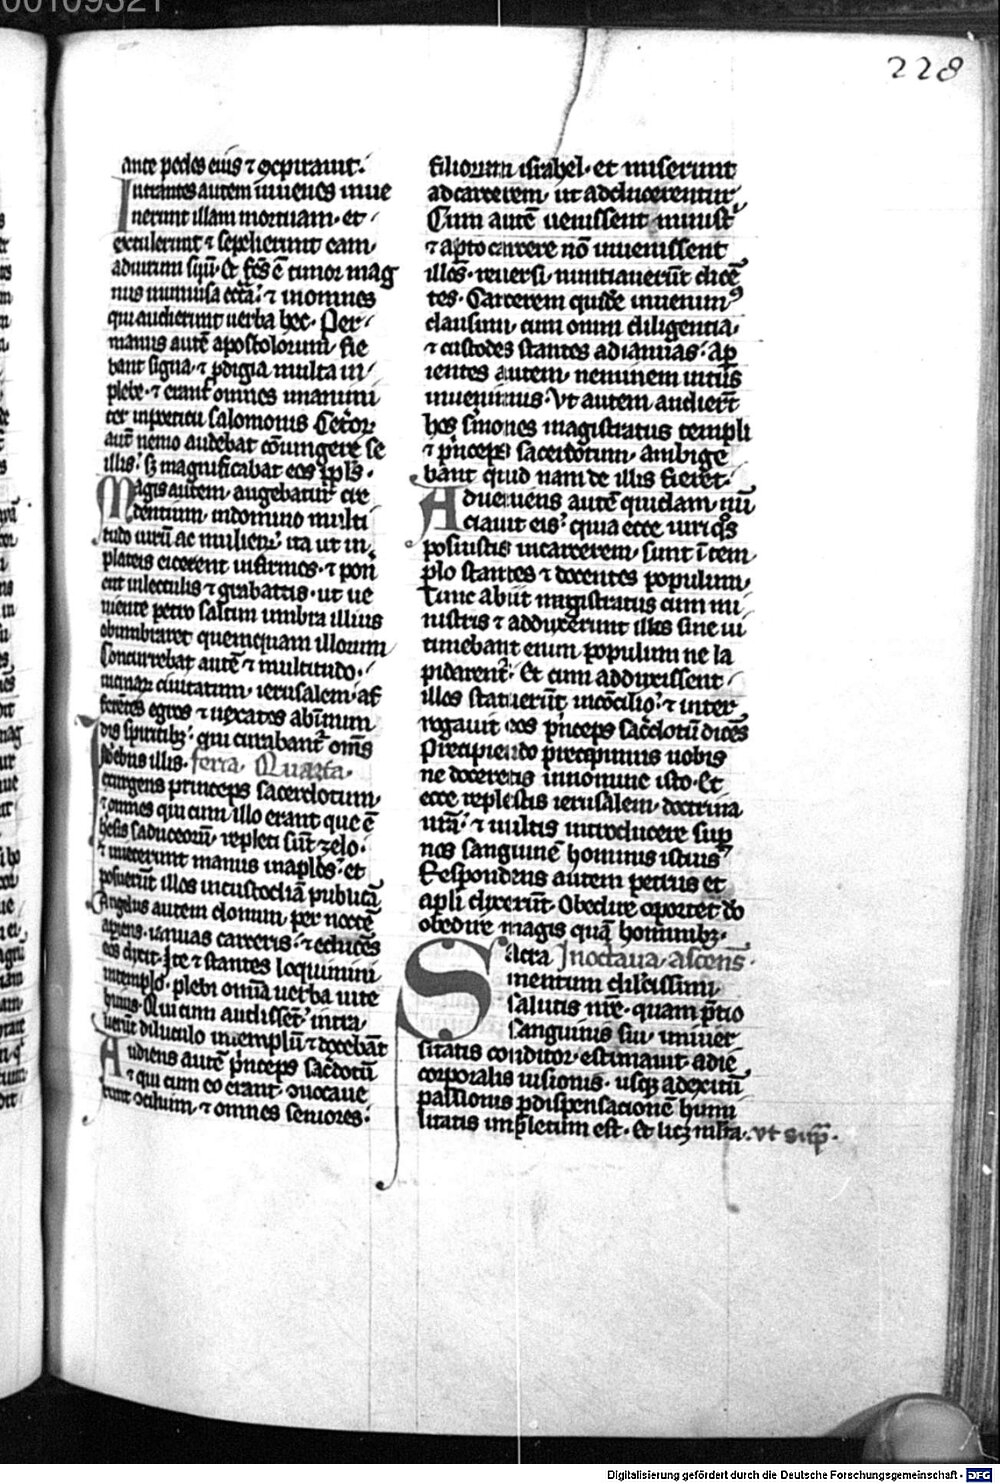 228
ante pedes eius ⁊ exspirauit.
Intrantes autem iuuenes inue
nerunt illam mortuam. et
extulerunt ⁊ sepelierunt eam
ad uirum suū. Et fcs̄ ē timor mag
nus in uniūsa ecc̄ia. ⁊ in omnes
qui audierunt uerba hec. Per
manus autē apostolorum fie
bant signa. ⁊ ꝓdigia multa in
plebe. ⁊ erant omnes unanimi
ter in porticu salomonis Ceteroꝝ
aut̄ nemo audebat cōiungere se
illis. sꝫ magnificabat eos ppl̄s.
Magis autem augebatur cre
dentium in domino multi
tudo uiroꝝ ac mulieꝝ ita ut in
plateis eicerent infirmos. ⁊ pon
ent in lectulis ⁊ grabattis. ut ue
niente petro saltim umbra illius
obumbraret quemquam illorum
Concurrebat autē ⁊ multitudo
uicinaꝝ ciuitatum ierusalem. af
ferētes egros ⁊ uexatos ab inmun
dis spiritibꝫ. qui curabant̄ oms̄
In diebus illis. feria Quarta.
exurgens princeps sacerdotum
⁊ omnes qui cum illo erant que ē
hesis saduceorū. repleti sūt zelo.
⁊ iniecerunt manus in apl̄os. et
posuerūt illos in custodiā publicā
Angelus autem domini per noctē
aperiens ianuas carceris. ⁊ educēs
eos dixit. Ite ⁊ stantes loquimini
in templo. plebi omīa uerba uite
huius. Qui cum audissēt. intra
uerūt diluculo in templū ⁊ docebāt
Audiens autē p̄nceps sac̄dotū
⁊ qui cum eo erant. ɔuocaue
runt ɔcilium. ⁊ omnes seniores.
filiorum israhel. et miserunt
ad carcerem. ut adducerentur
Cum autē uenissent minist̄
⁊ apto carcere nō inuenissent
illos. reuersi. nuntiauerūt dicē
tes. Carcerem quidē inuenimꝰ
clausum. cum omni diligentia.
⁊ custodes stantes ad ianuas. ap
ientes autem. neminem intus
inuenimus. Vt autem audierūt
hos s̄mones magistratus templi
⁊ p̄nceps sacerdotum. ambige
bant quid nam de illis fieret.
Adueniens autē quidam. nū
ciauit eis. quia ecce uiri qs
posuistis in carcerem. sunt ī tem
plo stantes ⁊ docentes populum.
Tunc abiit magistratus cum mi
nistris ⁊ adduxerunt illos sine ui
timebant enim populum ne la
pidarent̄. Et cum adduxissent
illos statuerūt in cōcilio. ⁊ inter
rogauit eos p̄nceps sac̄dotū dicēs
Precipiendo precepimus uobis
ne doceretis in nomine isto. Et
ecce replestis ierusalem. doctrina
ur̄a. ⁊ uultis introducere sup
nos sanguinē hominis istius
Respondens autem petrus et
apl̄i dixerūt. Obedire oportet dō
obedire magis quā hominibꝫ.
Sacra In octaua ascens.
mentum dil̄cissimi
salutis nr̄e. quam p̄tio
sanguinis sui. uniuer
sitatis conditor estimauit. a die
corporalis uisionis. usqꝫ ad exitū
passionis ꝑ dispensacionē humi
litatis impletum est. Et licꝫ mlta. vt sup̄.
Digitalisierung gefördert durch die Deutsche Forschungsgemeinschaft - DFG